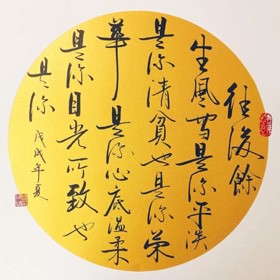 往後餘
生風雪是你平淡
是你清貧也是你榮
華是你心底溫柔
是你目光所致也
是你
戊戌年夏